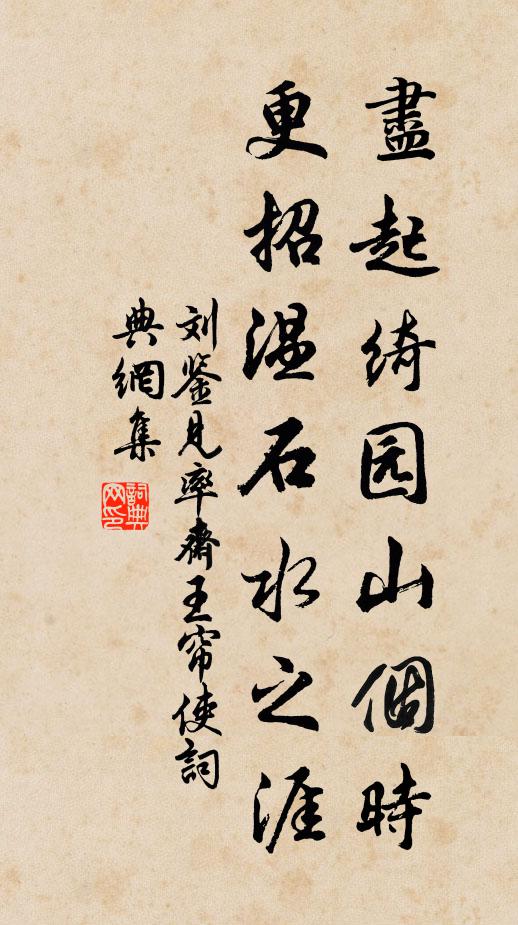 盡起绮园山個時
更招温石水之涯
刘鉴見率齋王帘使詞
典網集
詞典网印